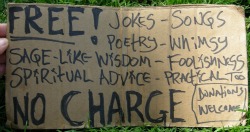 FREE! JOKES - SONGS
POETRY - WHIMSY
SAGE-LIKE WISDOM - FOOLISHNESS
SPIRITUAL ADVICE - PRACTICAL, TOO
NO CHARGE (DONATIONS
WELCOME)